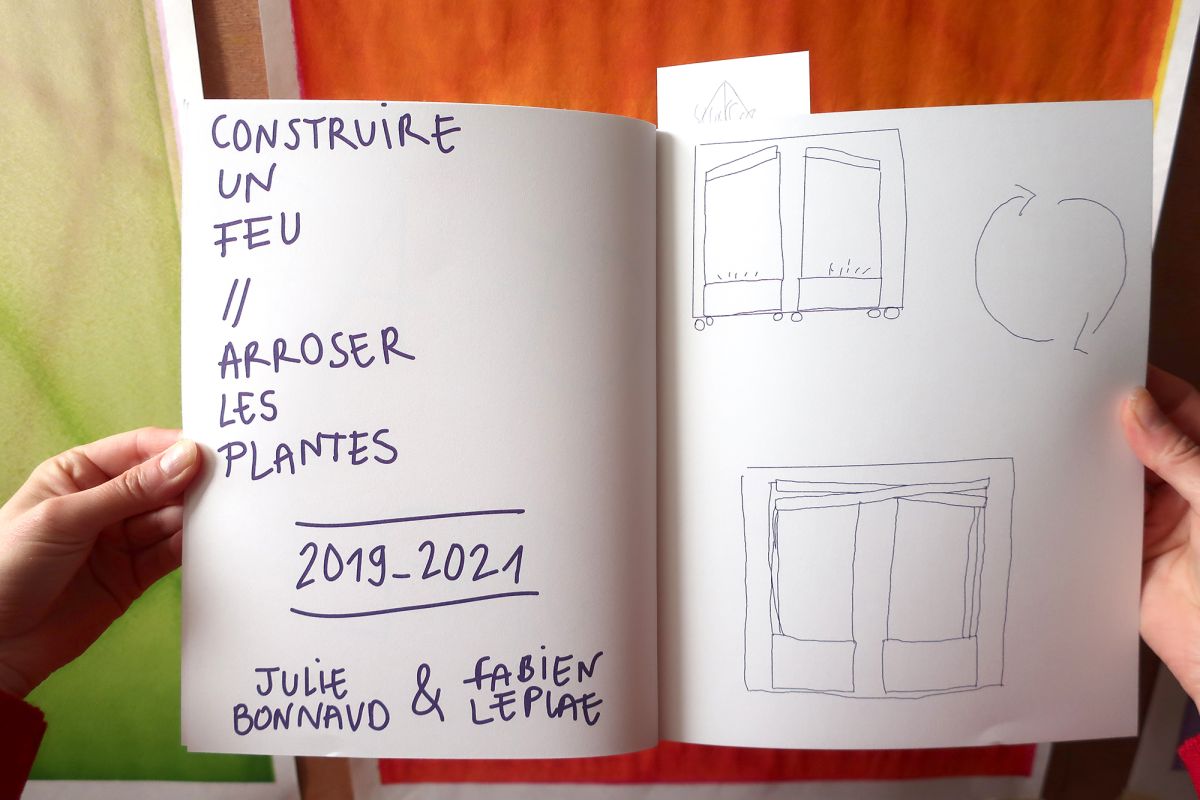 CONSTRUIRE
UN
FEU
//
ARROSER
LES
PLANTES
2019_2021
JULIE
BONNAUD
&
FABIEN
LEPLAE